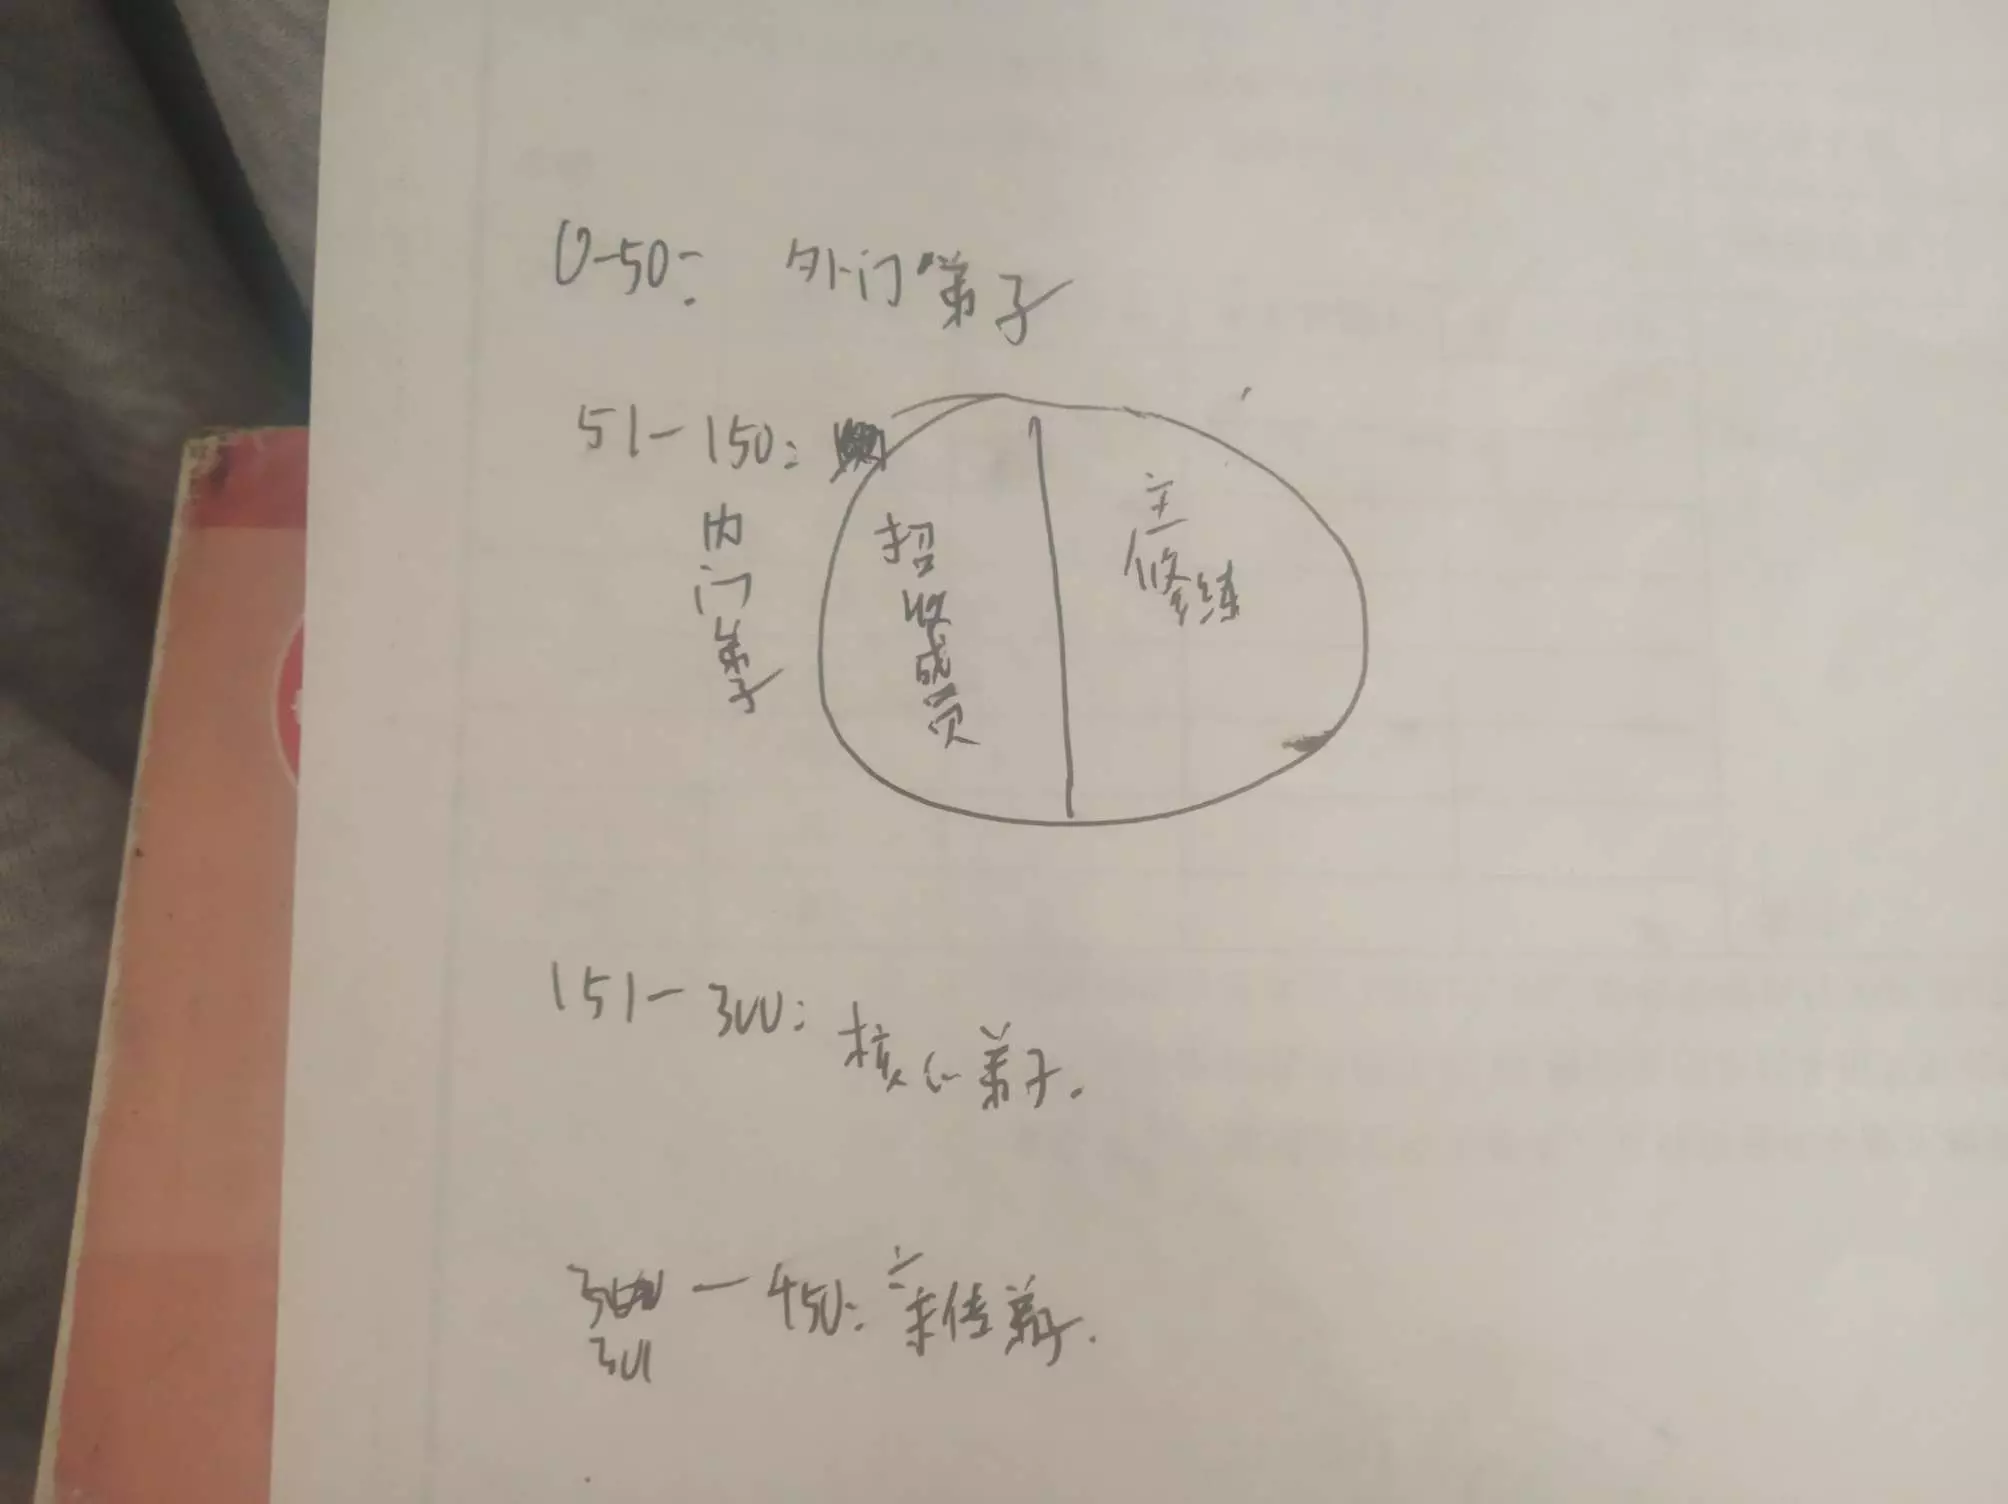 0-50: 外门弟子
51-150:
内门弟子
招收成员
主修练
151-300: 核心弟子.
301
-450: 亲传弟子.